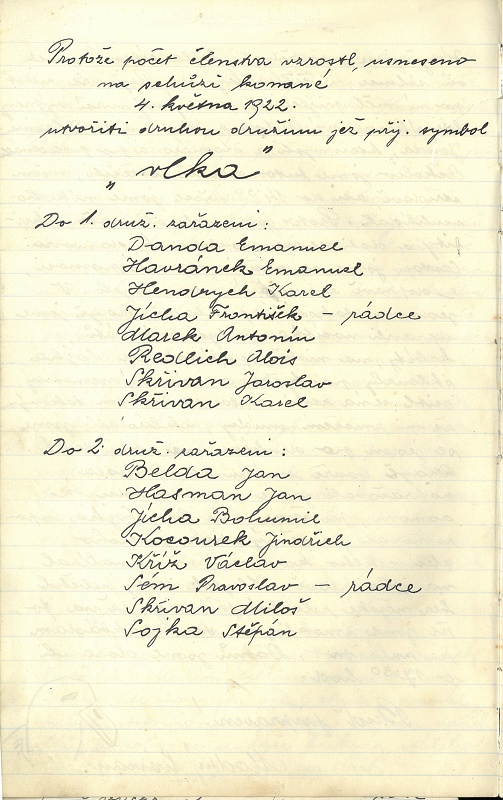 Protože počet členstva vzrostl, usneseno
na schůzi konané
4. května 1922.
utvořiti druhou družinu jež přij. symbol
„ vlka "
Do 1. druž. zařazeni :
Danda Emanuel
Havránek Emanuel
Hendrych Karel
Jícha František – rádce
Marek Antonín
Redlich Alois
Skřivan Jaroslav
Skřivan Karel
Do 2. druž. zařazeni :
Belda Jan
Hasman Jan
Jícha Bohumil
Kocourek Jindřich
Kříž Václav
Sém Pravoslav – rádce
Skřivan Miloš
Sojka Stěpán